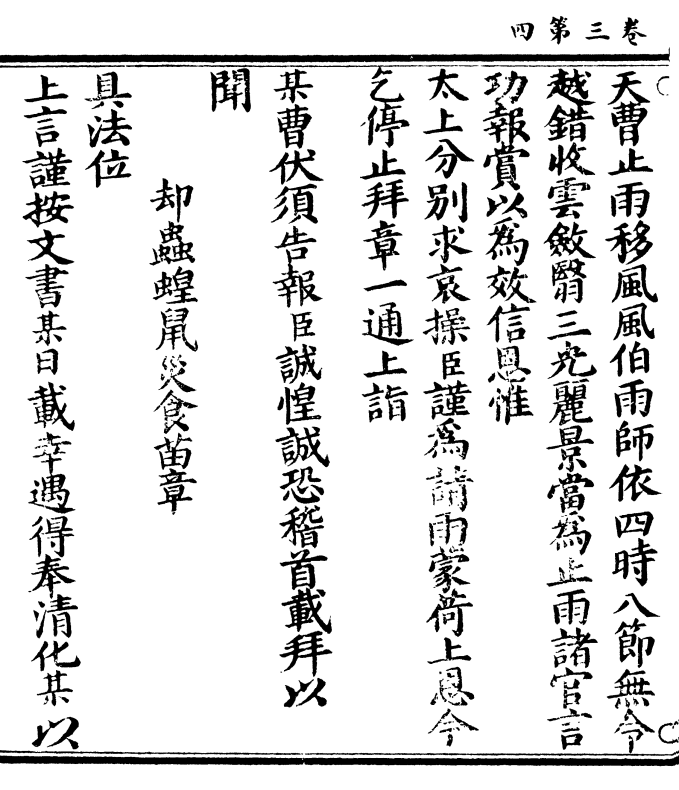 卷三第四
天曹止雨移風風伯雨師依四時八節無令
越錯收雲斂翳三光麗景當為止雨諸官言
功報賞以為效信恩惟
太上分別求哀操臣謹為請雨蒙荷上恩今
乞停止拜章一通上詣
某曹伏須告報臣誠惶誠恐稽首載拜以
聞
却蟲蝗鼠災食苗章
具法位
上言謹按文書某日載幸遇得奉清化某以